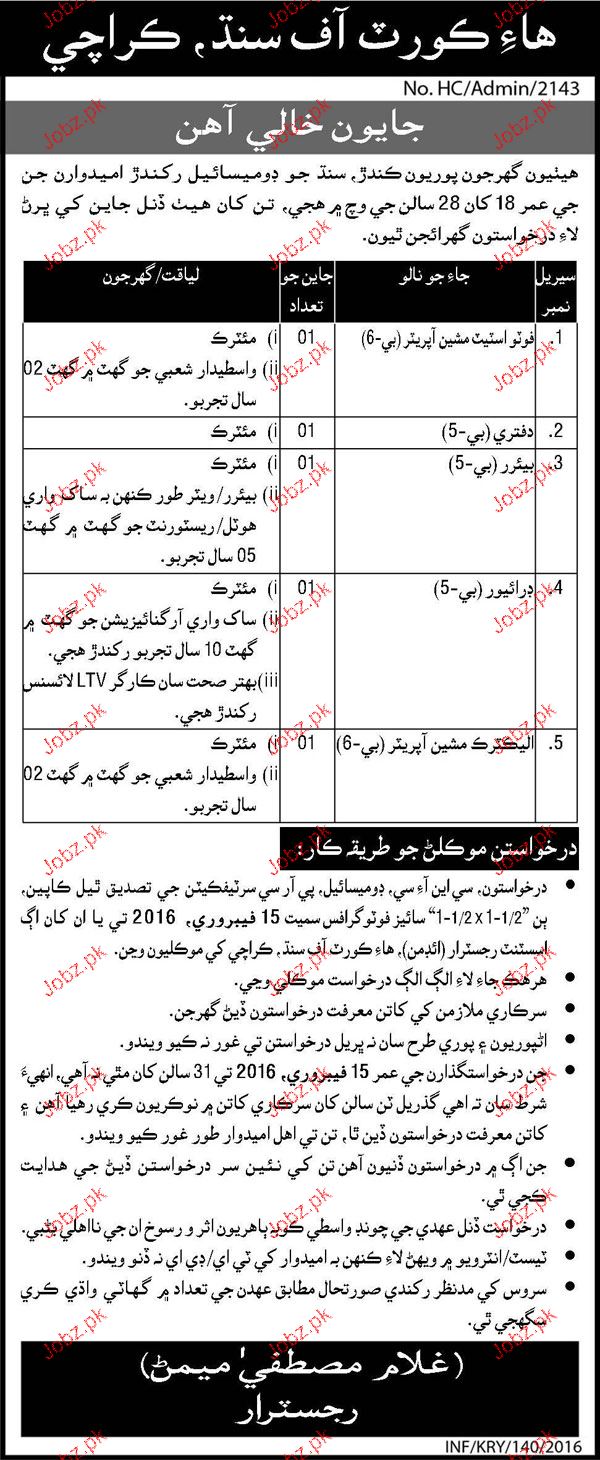 هاءِ ڪورٽ آف سنڌ، ڪراچي
No. HC/Admin/2143
جايون خالي آهن
هيٺيون گهرجون پوريون ڪندڙ، سنڌ جو ڊوميسائيل رکندڙ اميدوارن جن
جي عمر 18 کان 28 سالن جي وچ ۾ هجي، تن کان هيٺ ڏنل جاين کي ڀرڻ
لاءِ درخواستون گهرائجن ٿيون.
سيريل نمبر	جاءِ جو نالو	جاين جو تعداد	لياقت/گهرجون
1.	فوٽو اسٽيٽ مشين آپريٽر (بي-6)	01	i) مئٽرڪ
ii) واسطيدار شعبي جو گهٽ ۾ گهٽ 02
سال تجربو.
2.	دفتري (بي-5)	01	i) مئٽرڪ
3.	بيئرر (بي-5)	01	i) مئٽرڪ
ii) بيئرر/ويٽر طور ڪنهن به ساک واري
هوٽل/ريسٽورنٽ جو گهٽ ۾ گهٽ
05 سال تجربو.
4.	ڊرائيور (بي-5)	01	i) مئٽرڪ
ii) ساک واري آرگنائيزيشن جو گهٽ ۾
گهٽ 10 سال تجربو رکندڙ هجي.
iii) بهتر صحت سان ڪارگر LTV لائسنس
رکندڙ هجي.
5.	اليڪٽرڪ مشين آپريٽر (بي-6)	01	i) مئٽرڪ
ii) واسطيدار شعبي جو گهٽ ۾ گهٽ 02
سال تجربو.
درخواستن موڪلڻ جو طريقه ڪار:
• درخواستون، سي اين آءِ سي، ڊوميسائيل، پي آر سي سرٽيفڪيٽن جي تصديق ٿيل ڪاپين،
ٻن "1-1/2 x 1-1/2" سائيز فوٽوگرافس سميت 15 فيبروري، 2016 تي يا ان کان اڳ
اسسٽنٽ رجسٽرار (ائڊمن)، هاءِ ڪورٽ آف سنڌ، ڪراچي کي موڪليون وڃن.
• هر هڪ جاءِ لاءِ الڳ الڳ درخواست موڪلي وڃي.
• سرڪاري ملازمن کي کاتن معرفت درخواستون ڏيڻ گهرجن.
• اڻپوريون ۽ پوري طرح سان نه ڀريل درخواستن تي غور نه ڪيو ويندو.
• جن درخواستگذارن جي عمر 15 فيبروري، 2016 تي 31 سالن کان مٿي نه آهي، انهيءَ
شرط سان ته اهي گذريل ٽن سالن کان سرڪاري کاتن ۾ نوڪريون ڪري رهيا آهن ۽
کاتن معرفت درخواستون ڏين ٿا، تن تي اهل اميدوار طور غور ڪيو ويندو.
• جن اڳ ۾ درخواستون ڏنيون آهن تن کي نئين سر درخواستن ڏيڻ جي هدايت
ڪجي ٿي.
• درخواست ڏنل عهدي جي چونڊ واسطي ڪوبه ٻاهريون اثر و رسوخ ان جي نااهلي بڻبي.
• ٽيسٽ/انٽرويو ۾ ويهڻ لاءِ ڪنهن به اميدوار کي ٽي اي/ڊي اي نه ڏنو ويندو.
• سروس کي مدنظر رکندي صورتحال مطابق عهدن جي تعداد ۾ گهٽائي واڌي ڪري
سگهجي ٿي.
(غلام مصطفيٰ ميمڻ)
رجسٽرار
INF/KRY/140/2016
Jobz.pk